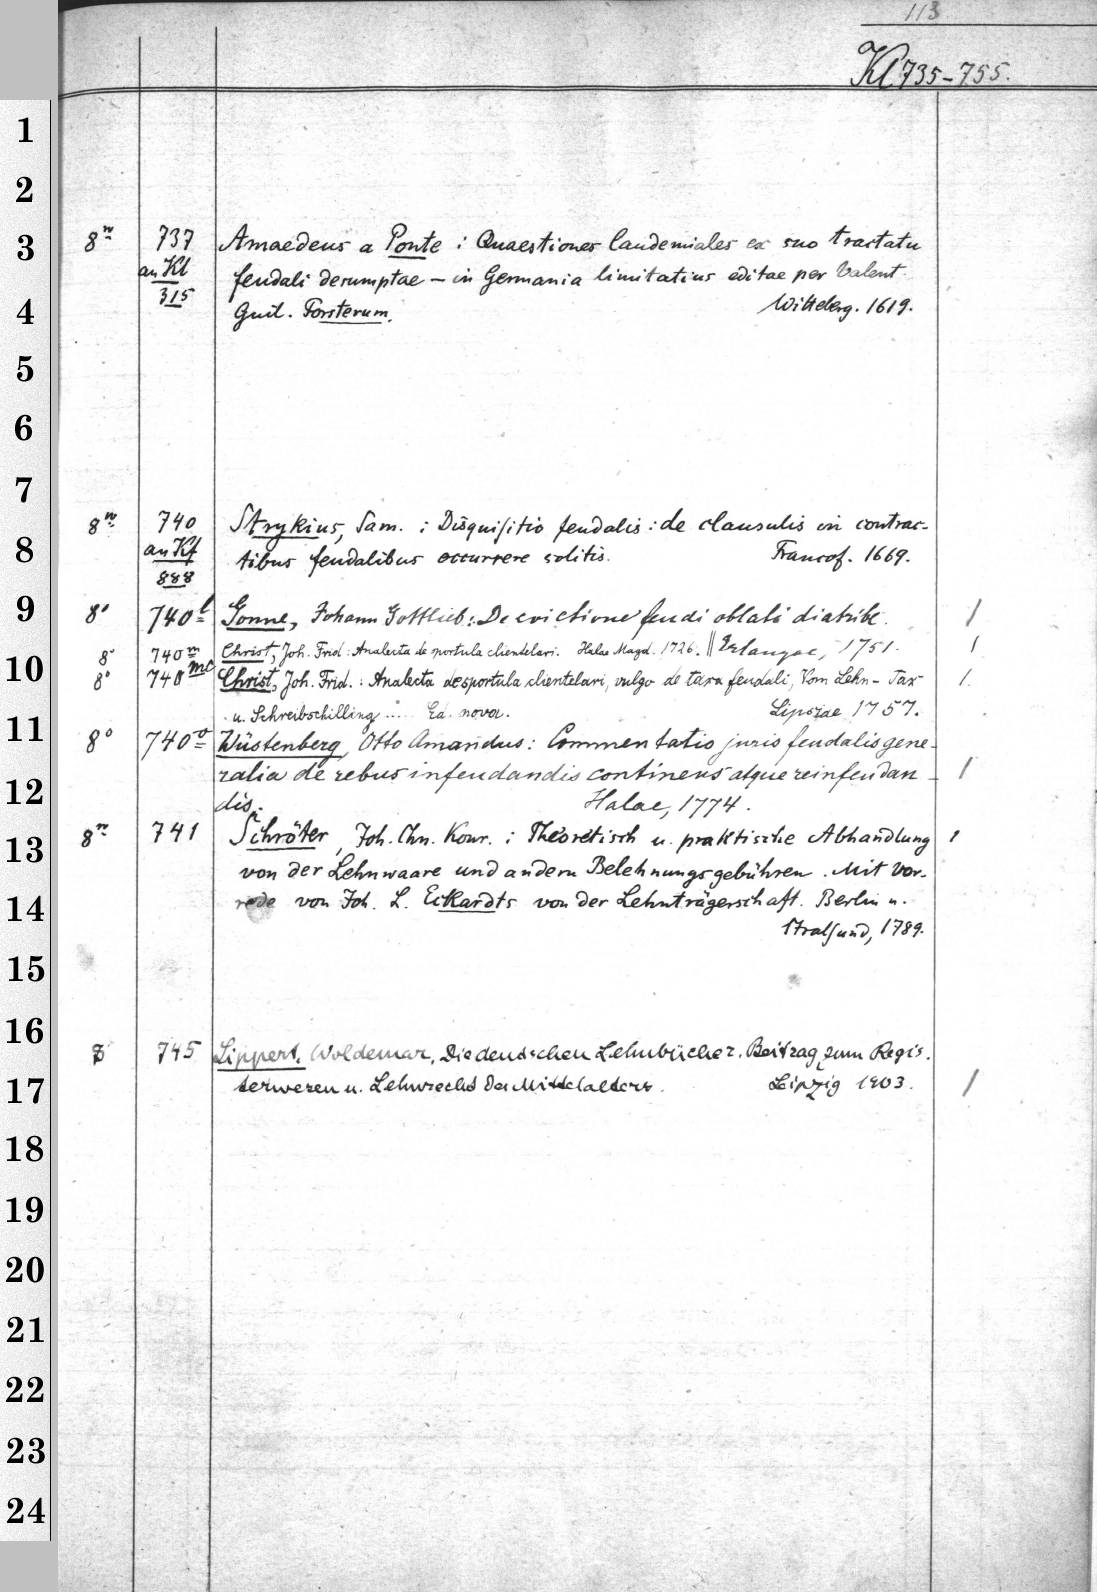 113
Kl 735-755.
1
2
3
8º 737 Amaedeus a Ponte : Quaestiones laudemiales ex suo tractatu
an Kl feudali desumptae – in Germania limitatius editae per Valent.
315
4
Guil. Forsterum. Witteberg. 1619.
5
6
7
8º 740 Strykius, Sam. : Disquisitio feudalis : de clausulis in contrac-
an Kf
8
tibus feudalibus occurrere solitis. Francof. 1669.
888
9
8º 740 l Gonne, Johann Gottlieb : De evictione feudi oblati diatribe. 1
Erlangae, 1751.
8º 740 m Christ, Joh. Frid. : Analecta de sportula clientelari. Halae Magd. 1726. 1
10
8º 740 mc Christ, Joh. Frid. : Analecta de sportula clientelari, vulgo de taxa feudali, Vom Lehn-Tax 1.
u. Schreibschilling ..... Ed. nova. Lipsiae 1757.
11
8º 740 o Wüstenberg, Otto Amandus : Commentatio juris feudalis gene-
ralia de rebus infeudandis continens atque reinfeudan- 1
12
dis. Halae, 1774.
13
8º 741 Schröter, Joh. Chn. Konr. : Theoretisch u. praktische Abhandlung 1
von der Lehnwaare und andern Belehnungsgebühren. Mit Vor-
14
rede von Joh. L. Eckardts von der Lehnträgerschaft. Berlin u.
Stralsund, 1789.
15
16
8º 745 Lippert, Woldemar, Die deutschen Lehnbücher. Beitrag zum Regis-
17
terwesen u. Lehnrecht des Mittelalters. Leipzig 1903. 1
18
19
20
21
22
23
24